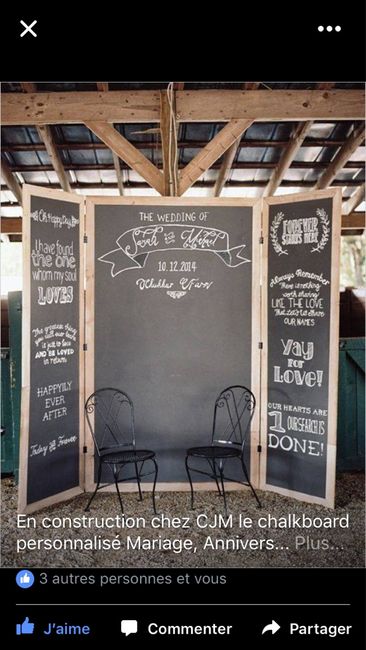 THE WEDDING OF
Sarah
10.12.2014
Oh Happy Day
I have found
the one
whom my soul
LOVES
The greatest thing
you will ever learn
is just to love
AND BE LOVED
in return
HAPPILY
EVER
AFTER
Today
Forever
FOREVER
STARTS HERE
Always Remember
there is nothing
worth sharing
LIKE THE LOVE
that let's us share
OUR NAMES
YAY
FOR
LOVE!
OUR HEARTS ARE
1 OUR SEARCH IS
DONE!
En construction chez CJM le chalkboard
personnalisé Mariage, Annivers... Plus...
3 autres personnes et vous
J'aime
Commenter
Partager